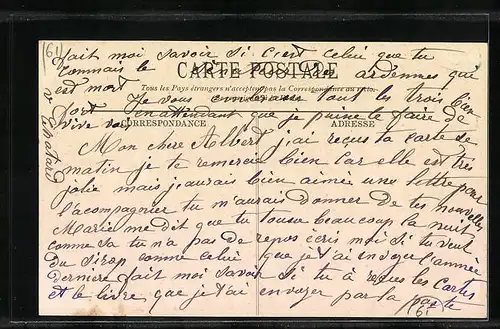 (61)
fait moi savoir si c'est celui que tu
connais le ardennes qui
CARTE POSTALE
est mort
Tous les Pays étrangers n'acceptent pas la Correspondance au recto.
Je vous embrasse tout les trois bien
fort en attendant que je puisse le faire de
vive voix
CORRESPONDANCE
ADRESSE
Mon chere Albert j'ai reçus ta carte se
matin je te remerci bien car elle est tres
jolie mais j'aurais bien aimée une lettre pour
l'acompagnier tu m'aurais donner de tes nouvelles
Marie me dit que tu tousse beaucoup la nuit
comme sa tu n'a pas de repos écris moi si tu veut
du sirop comme celui que je t'ai envoyer l'année
derniere fait moi savoir si tu à reçus les cartes
et le livre que je t'ai envoyer par la poste
(61